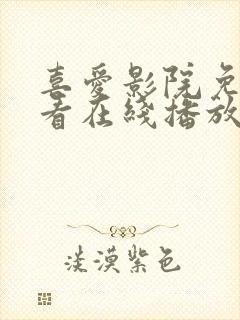 喜爱影院免
看在线播放
淡漠紫色